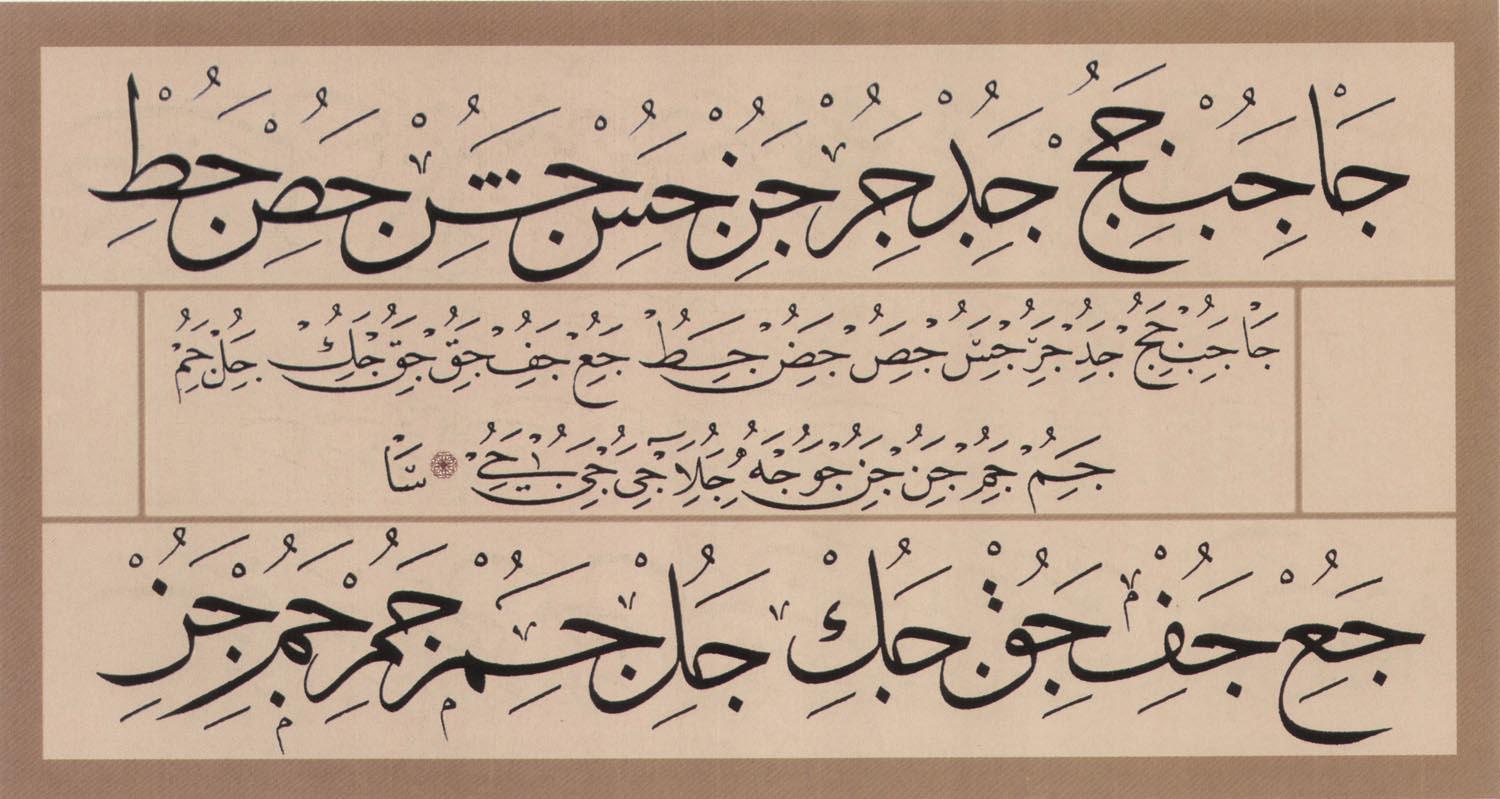 جا جب جج جد جر جز جس جش جص جط
جا جب جج جد جر جس جص جض جط جع جف جق جق جك جل جم
جم جم جن جن جو جه جلا جى جى جى سا
جع جف جق جك جل جم جم جم جن